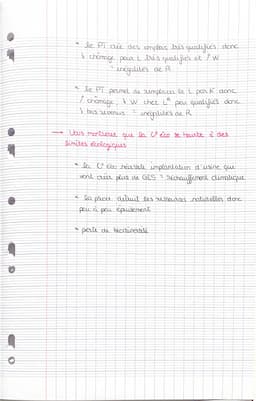 • Le PT crée des emplois très qualifiés donc
↓ chômage pour L très qualifiés et ↑ W
= inégalités de R
• Le PT permet de remplacer le L par K donc
↑ chômage, ↓ W chez L peu qualifiés donc
↓ bas revenus = inégalités de R
→ Vous montrerez que la C° éco se heurte à des
limites écologiques
• la C° éco nécessite implantation d'usine qui
vont créer plus de GES = réchauffement climatique
• La production détruit les ressources naturelles donc
peu à peu épuisement
• perte de biodiversité